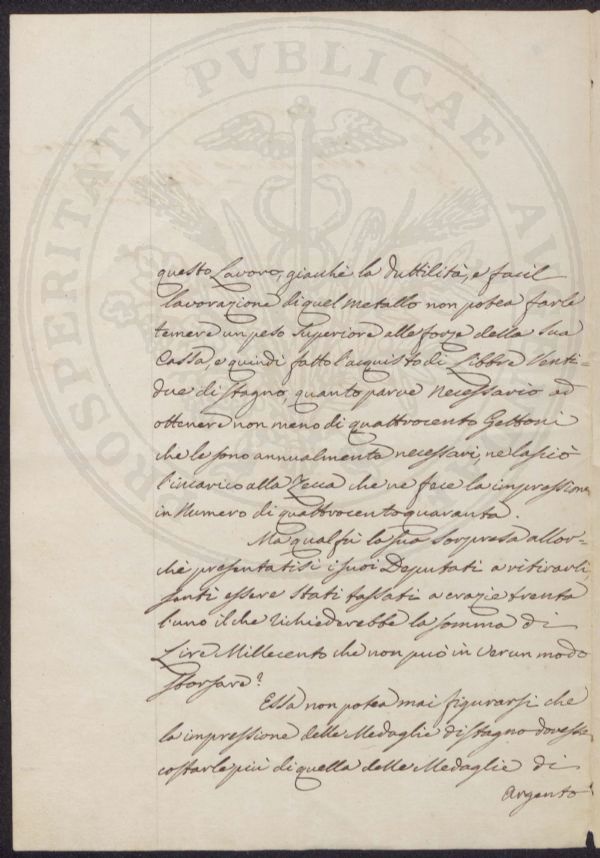 PROSPERITATI PVBLICAE AVG
questo Lavoro, giacchè la duttilità, e facil
lavorazione di quel metallo non potea farle
temere un peso superiore alle forze della sua
Cassa, e quindi fatto l'acquisto di Libbre Venti-
due di stagno, quanto parve necessario ad
ottenere non meno di quattrocento Gettoni
che le sono annualmente necessarj, ne lasciò
l'incarico alla Zecca che ne fece la impressione
in Numero di quattrocentoquaranta.
Ma qual fù la sua sorpresa allor-
chè presentatisi i suoi Deputati a ritirarli,
sentì essere stati tassati a crazie trenta
l'uno il che richiederebbe la somma di
Lire Millecento che non può in verun modo
sborsare?
Essa non potea mai figurarsi che
la impressione delle Medaglie di stagno dovesse
costarle più di quella delle Medaglie di
Argento